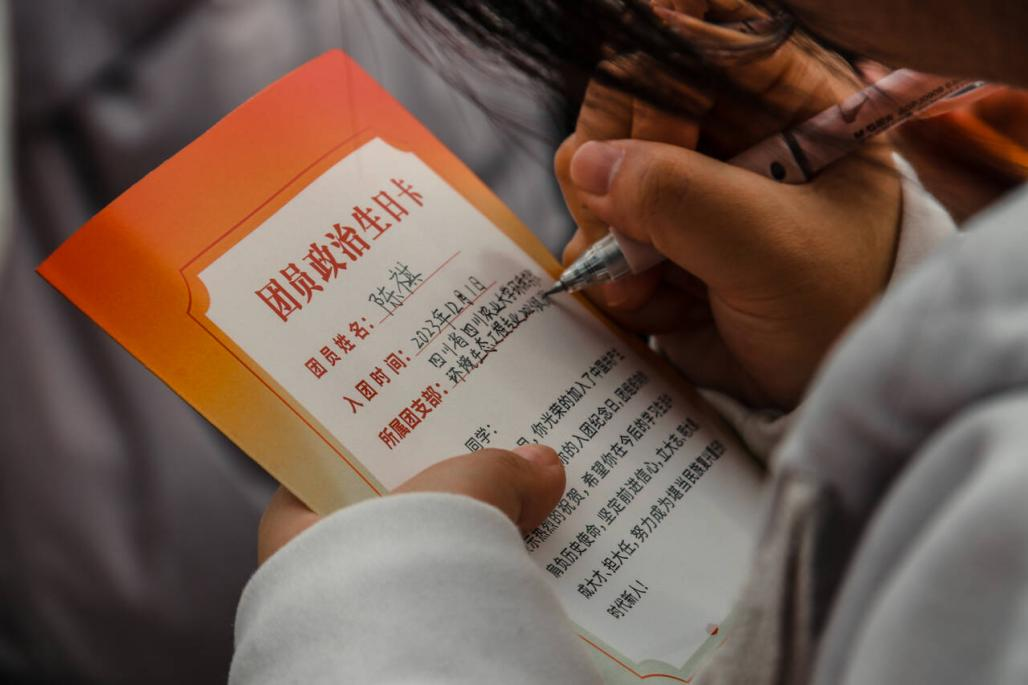 团员政治生日卡
团员姓名：陈祺
入团时间：2023年12月1日
所属团支部：四川省四川农业大学环境学院
环境生态工程专业
同学：
日，你光荣的加入了中国共产主
你的入团纪念日，团组织
示热烈的祝贺，希望你在今后的学习生活中
肩负历史使命，坚定前进信心，立大志、明大德、
成大才、担大任，努力成为堪当民族复兴重任
时代新人！
M&G